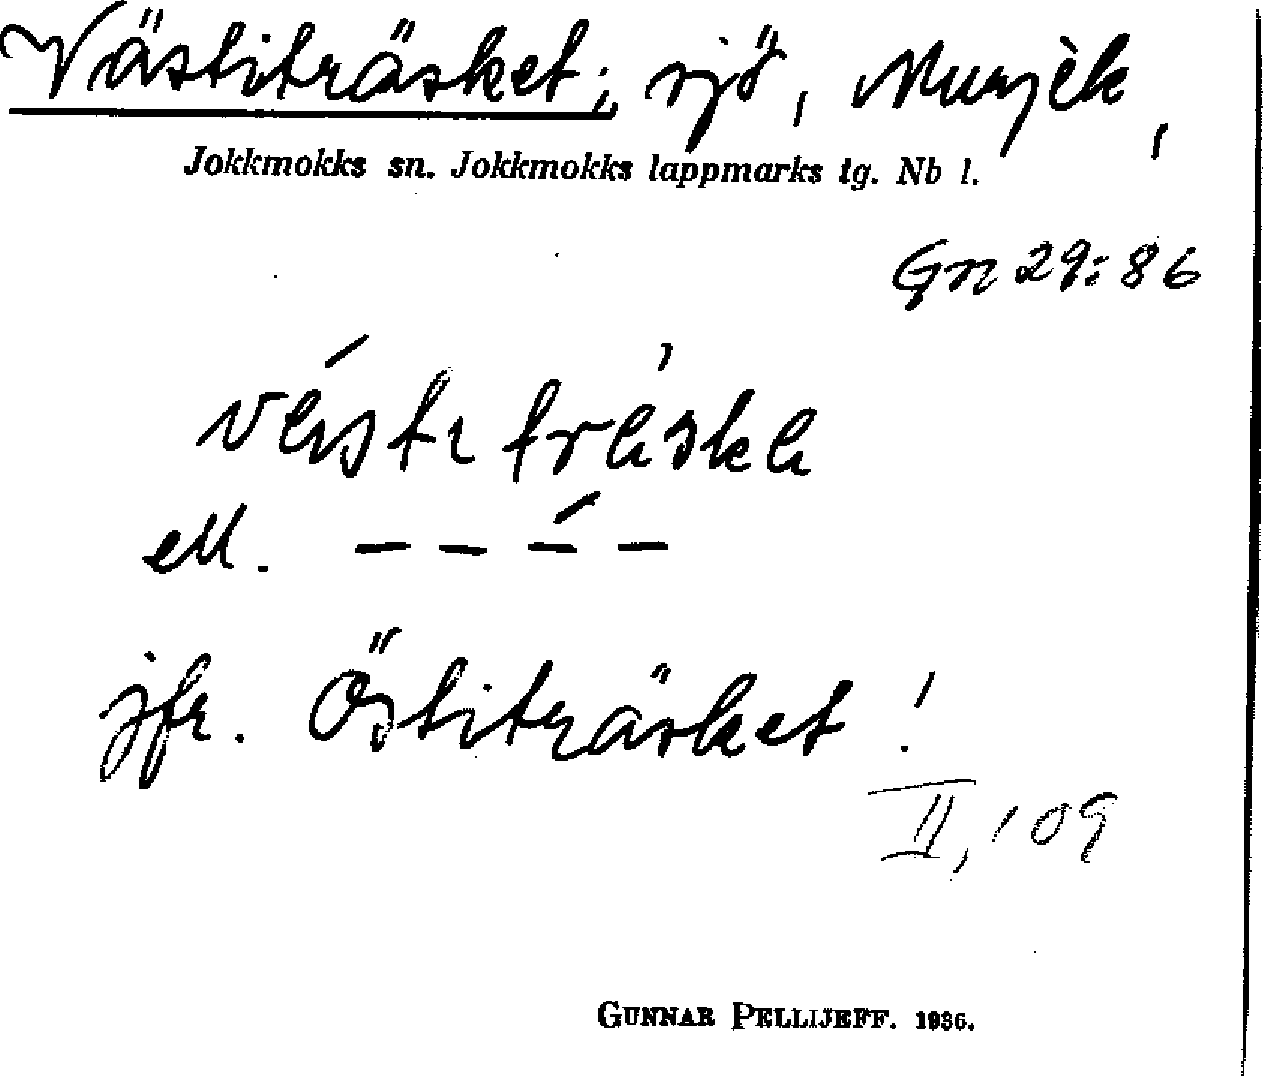 Västiträsket, sjö, Murjek,
Jokkmokks sn. Jokkmokks lappmarks tg. Nb l.
Gn 29:86
ell. – – –́ –
jfr. Östiträsket!
II, 109
GUNNAR PELLIJEFF. 1936.